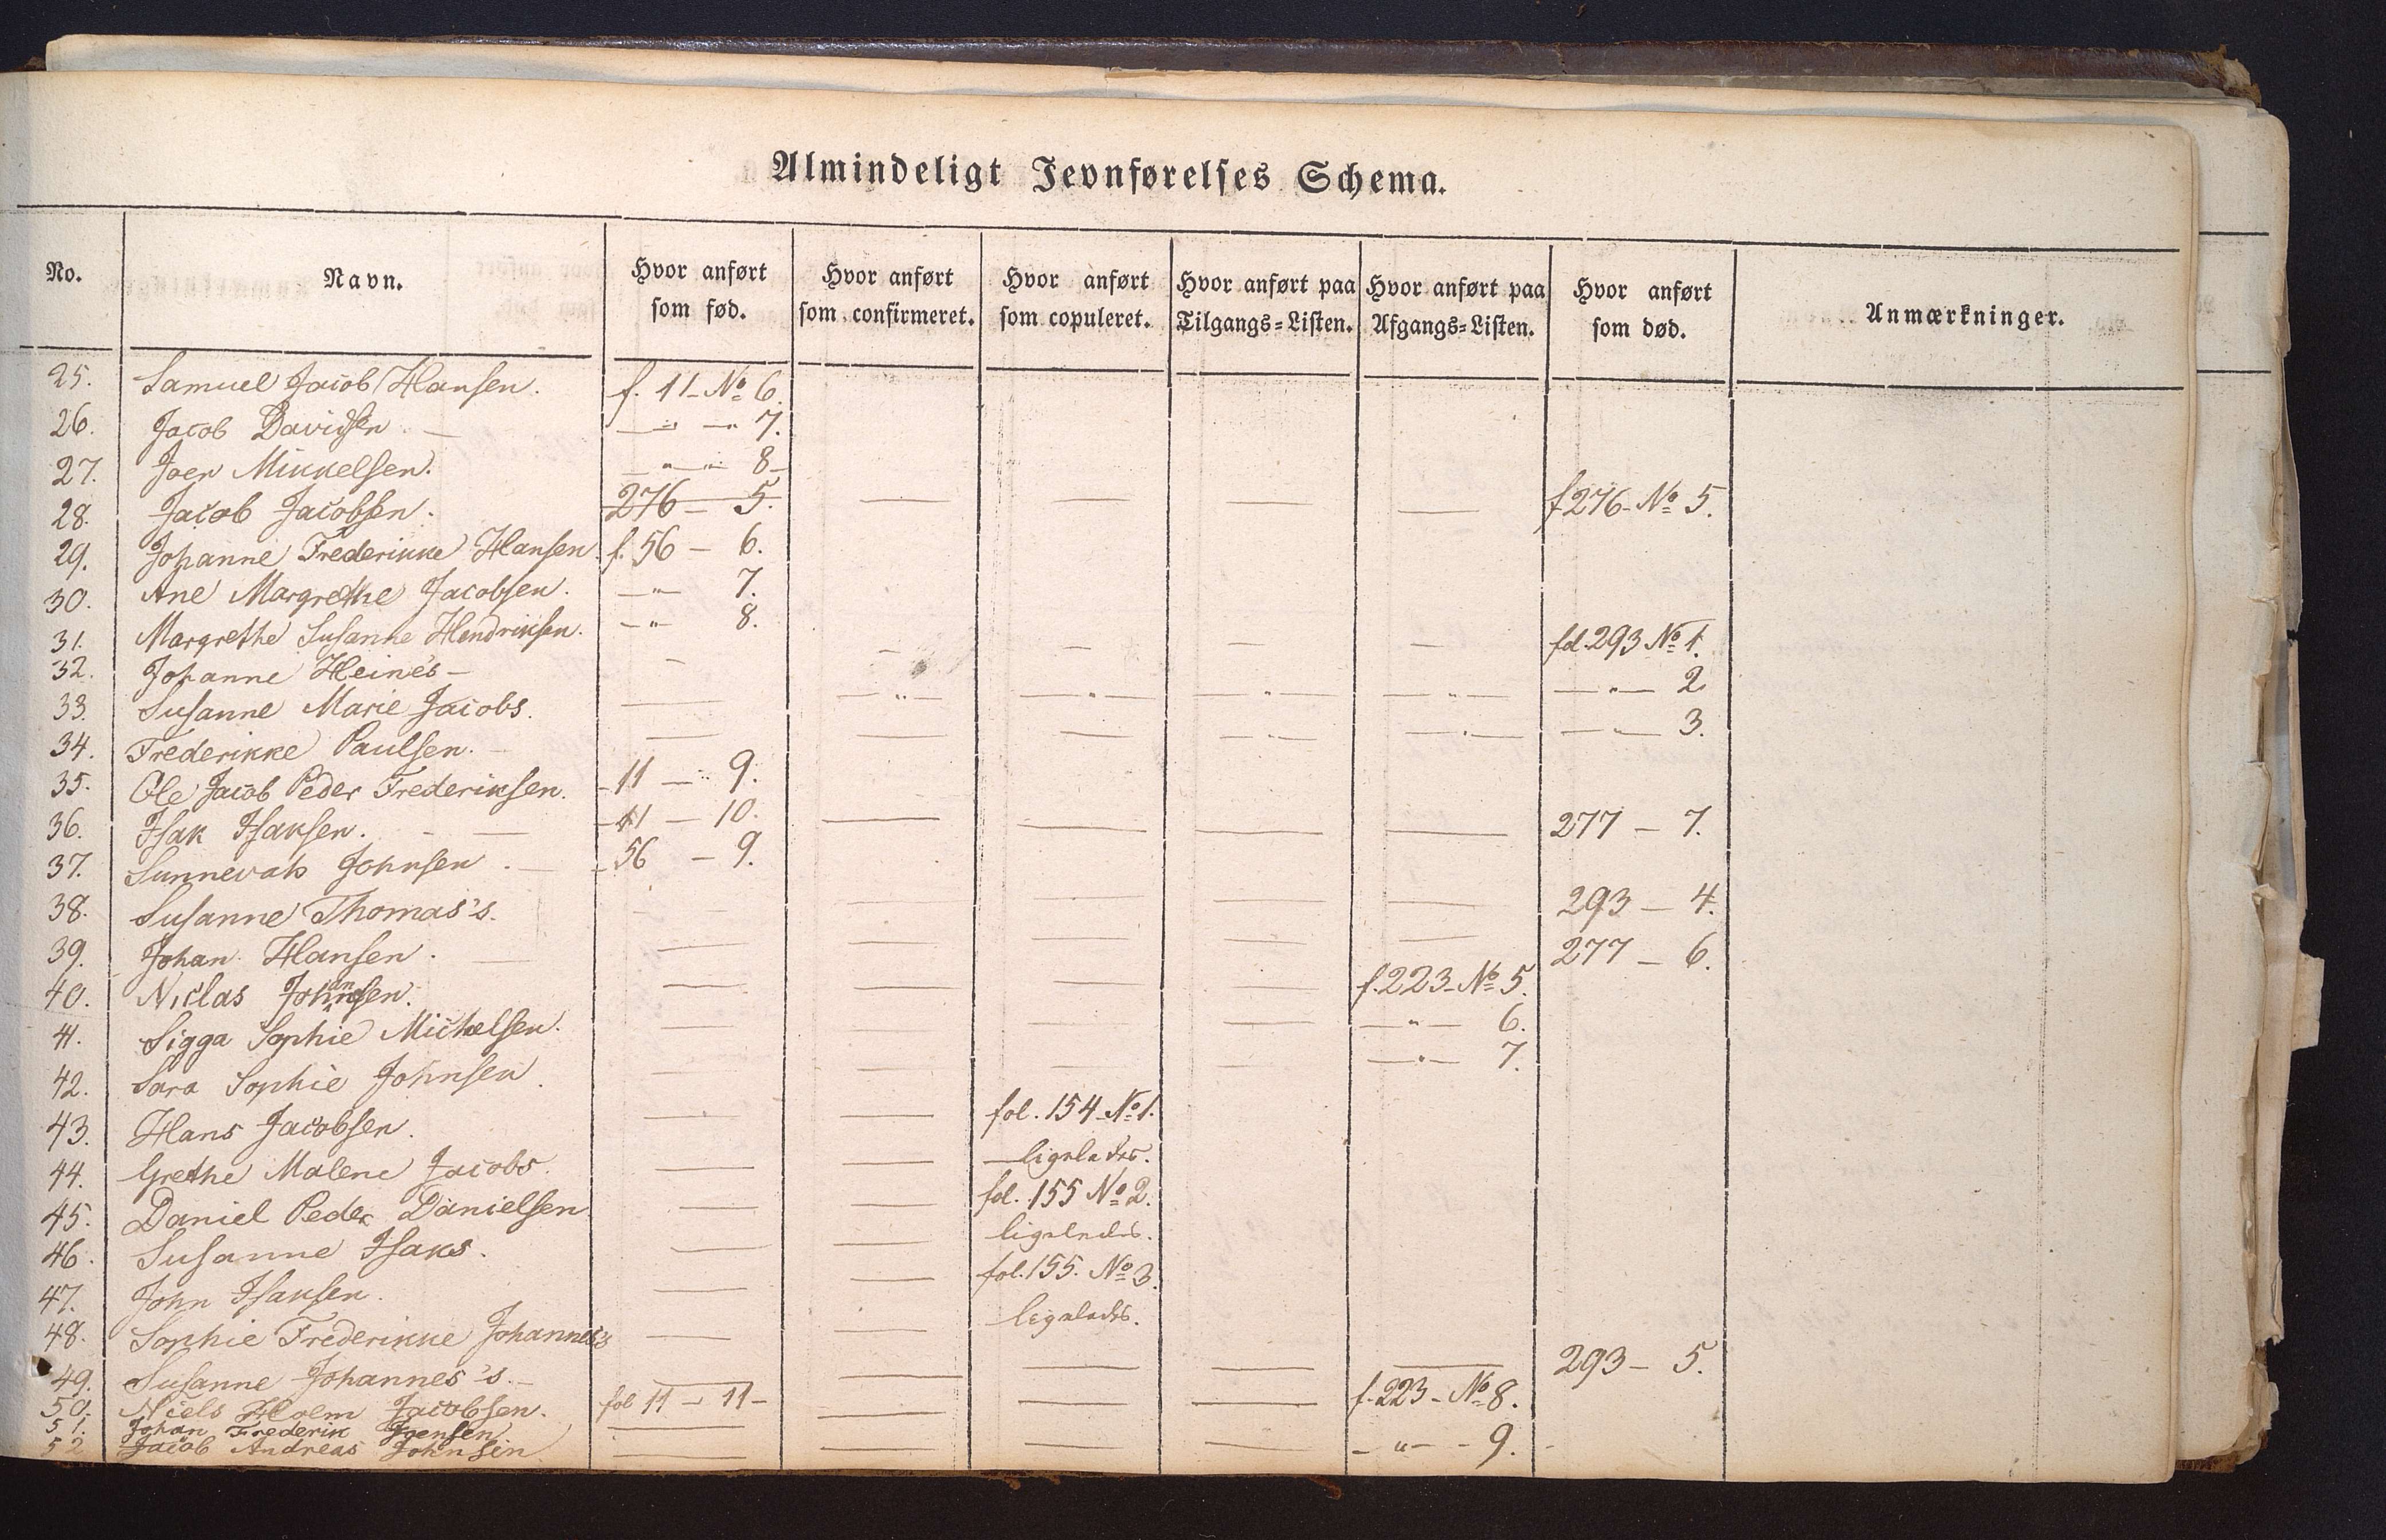 Almindeligt Jevnførelses Schema.
No. Navn. Hvor anført som fød. Hvor anført som confirmeret. Hvor anført som copuleret. Hvor anført paa Tilgangs=Listen. Hvor anført paa Afgangs=Listen. Hvor anført som død. Anmærkninger.
25. Samuel Jacob Hansen. f. 11 - No 6.
26. Jacob Davidsen — — " — " 7.
27. Joen Mikkelsen. — " — " 8 -
28. Jacob Jacobsen. 276 — 5. — — — — f 276 - No 5.
29. Johanne Frederikke Hansen. f. 56 — 6.
30. Ane Margrethe Jacobsen. — " — 7.
31. Margrethe Susanne Hendriksen. — " — 8.
32. Johanne Heines — — — — — — fol. 293 No 1.
33. Susanne Marie Jacobs. — — " — — " — — " — — " — — " — 2
34. Frederikke Paulsen. — — — — — " — — " — — " — 3.
35. Ole Jacob Peder Frederiksen. - 11 — " 9.
36. Isak Isaksen. — — - 11 — 10. — — — — 277 — 7.
37. Sunnevah Johnsen. — - 56 — 9.
38. Susanne Thomas's. — — — — — 293 — 4.
39. Johan Hansen. — — — — — — 277 — 6.
40. Niclas Johnsen. — — — — f. 223 - No 5.
41. Sigga Sophie Michelsen. — — — — — " — 6.
42. Sara Sophie Johnsen. — — — — — " — 7.
43. Hans Jacobsen. — — fol. 154 No 1.
44. Grethe Malene Jacobs. — — — ligeledes.
45. Daniel Peder Danielsen. — — fol. 155 No 2.
46. Susanne Isaks. — — ligeledes.
47. John Isaksen. — — fol. 155. No 3.
48. Sophie Frederikke Johannes's — — ligeledes.
49. Susanne Johannes's. — — — — — — 293 — 5.
50. Niels Holm Jacobsen. fol 11 — 11 —
51. Johan Frederik Joensen — — — — f. 223 - No 8.
52 Jacob Andreas Johnsen. — — — — — " — 9.